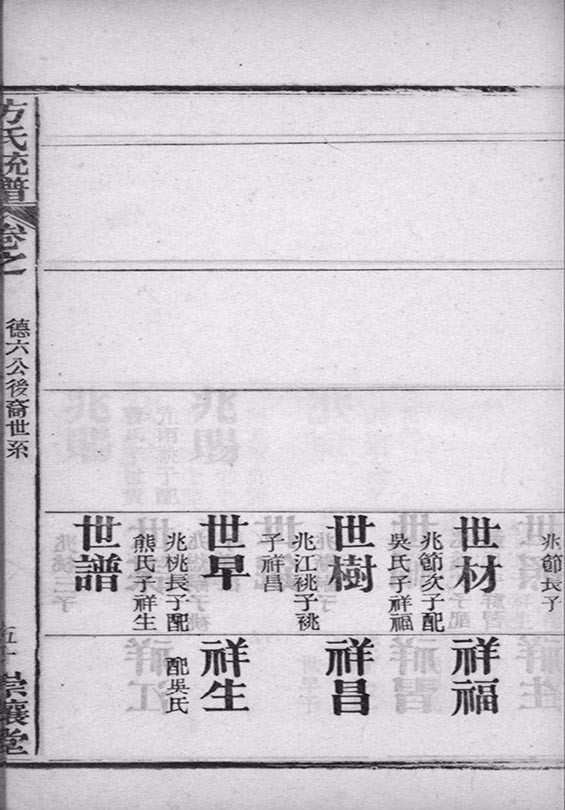 兆節長子
世材
兆節次子配
吳氏子祥福
祥福
世樹
兆江祧子祧
子祥昌
祥昌
世早
兆桃長子配
熊氏子祥生
祥生
配吳氏
世譜
方氏統譜
卷之
德六公後裔世系
五十
崇讓堂